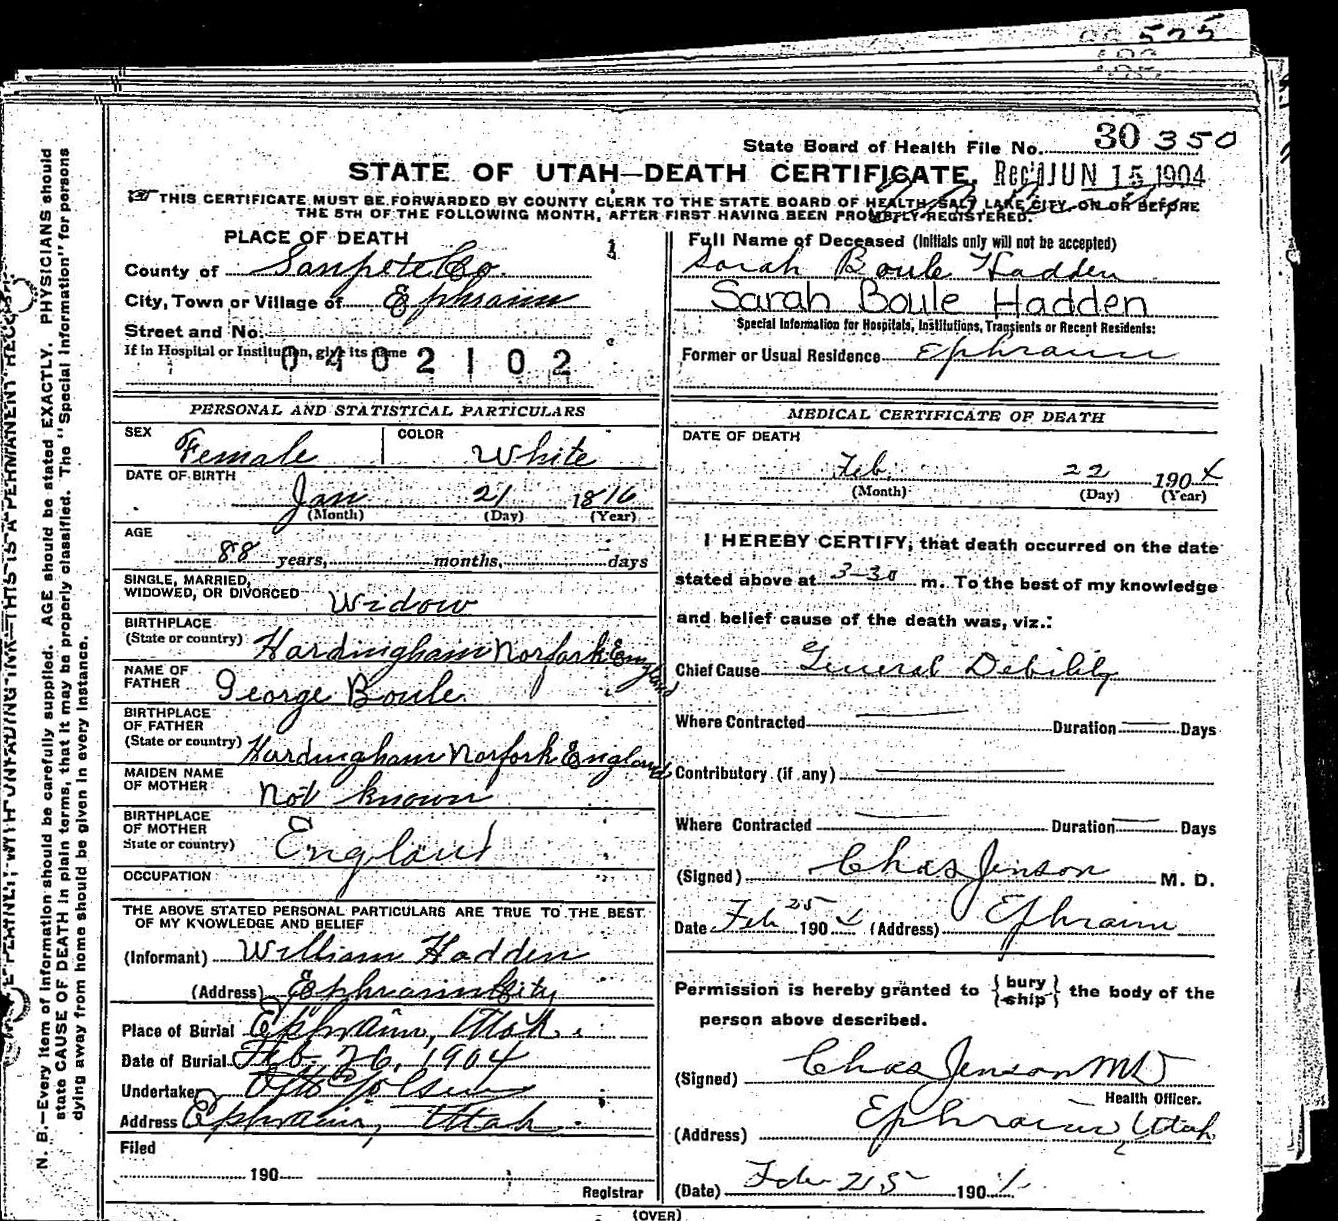 575
State Board of Health File No. 30350
STATE OF UTAH—DEATH CERTIFICATE. Rec'd JUN 15 1904
THIS CERTIFICATE MUST BE FORWARDED BY COUNTY CLERK TO THE STATE BOARD OF HEALTH, SALT LAKE CITY, ON OR BEFORE
THE 5TH OF THE FOLLOWING MONTH, AFTER FIRST HAVING BEEN PROMPTLY REGISTERED.
PLACE OF DEATH
County of Sanpete Co.
City, Town or Village of Ephraim
Street and No.
If in Hospital or Institution, give its name
0402102
Full Name of Deceased (Initials only will not be accepted)
Sarah Boule Hadden
Sarah Boule Hadden
Special Information for Hospitals, Institutions, Transients or Recent Residents:
Former or Usual Residence Ephraim
PERSONAL AND STATISTICAL PARTICULARS
SEX Female COLOR White
DATE OF BIRTH
Jan 21 1816
(Month) (Day) (Year)
AGE
88 years, months, days
SINGLE, MARRIED,
WIDOWED, OR DIVORCED Widow
BIRTHPLACE
(State or country) Hardingham Norfork England
NAME OF
FATHER George Boule
BIRTHPLACE
OF FATHER
(State or country) Hardingham Norfork England
MAIDEN NAME
OF MOTHER Not known
BIRTHPLACE
OF MOTHER
State or country) England
OCCUPATION
THE ABOVE STATED PERSONAL PARTICULARS ARE TRUE TO THE BEST
OF MY KNOWLEDGE AND BELIEF
(Informant) William Hadden
(Address) Ephraim City
Place of Burial Ephraim, Utah.
Date of Burial Feb 26, 1904
Undertaker Otto Olsen
Address Ephraim, Utah
Filed
190
Registrar
MEDICAL CERTIFICATE OF DEATH
DATE OF DEATH
Feb. 22 1904
(Month) (Day) (Year)
I HEREBY CERTIFY, that death occurred on the date
stated above at 3-30 m. To the best of my knowledge
and belief cause of the death was, viz.:
Chief Cause General Debility
Where Contracted Duration Days
Contributory (if any)
Where Contracted Duration Days
(Signed) Chas Jenson M. D.
Date Feb 25 1904 (Address) Ephraim
Permission is hereby granted to {bury ship} the body of the
person above described.
(Signed) Chas Jenson MD
Health Officer.
(Address) Ephraim, Utah
(Date) Feb 25 1904
(OVER)
N. B.—Every item of information should be carefully supplied. AGE should be stated EXACTLY. PHYSICIANS should
state CAUSE OF DEATH in plain terms, that it may be properly classified. The "Special Information" for persons
dying away from home should be given in every instance.
PLAINLY, WITH UNFADING INK—THIS IS A PERMANENT RECORD